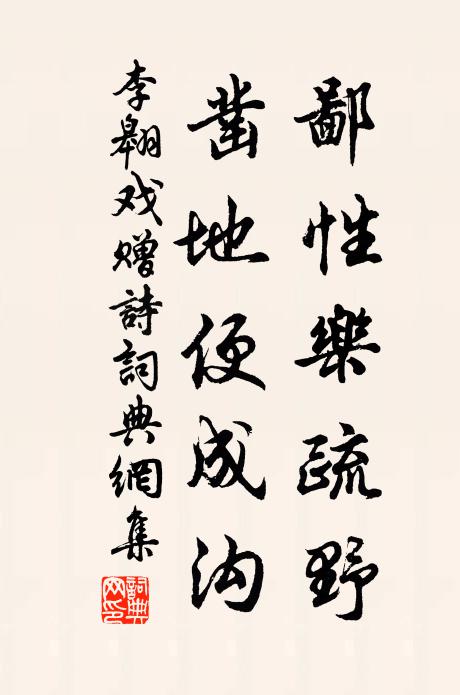 鄙性樂疏野
鑿地便成沟
李翱戏赠詩詞典網集
詞典
网印